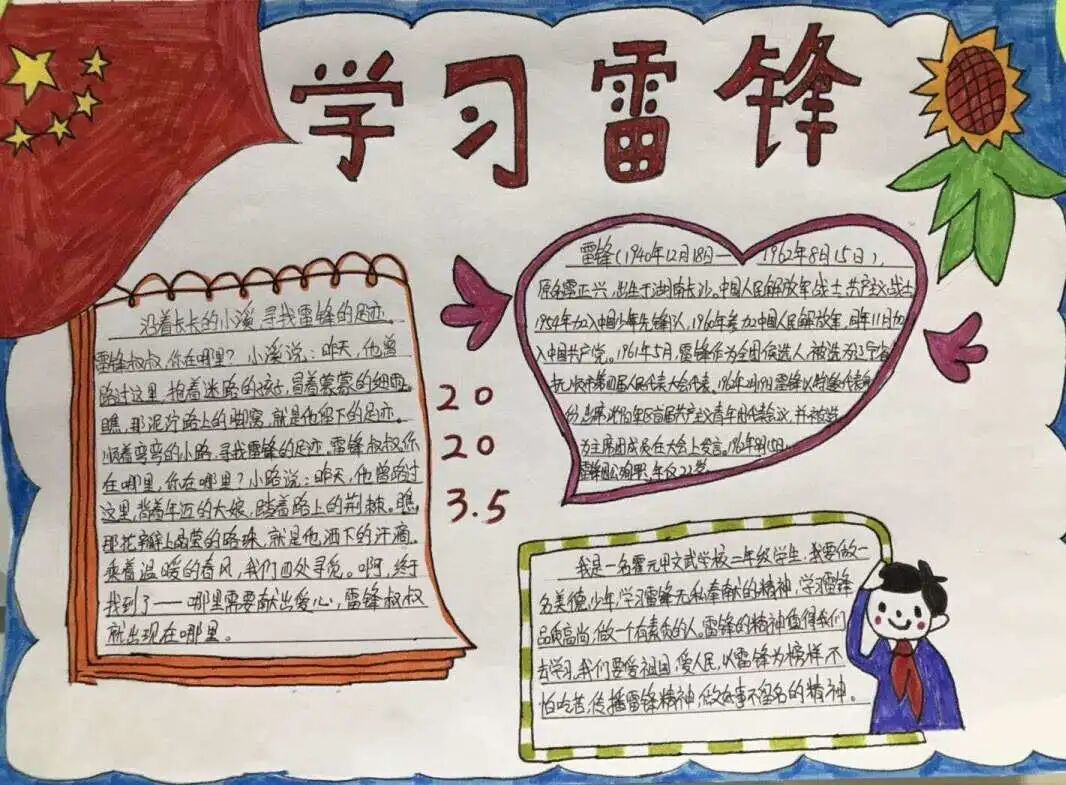 学习雷锋
沿着长长的小溪,寻找雷锋的足迹。
雷锋叔叔,你在哪里?小溪说:昨天,他曾
路过这里,抱着迷路的孩子,冒着蒙蒙的细雨。
瞧,那泥泞路上的脚窝,就是他留下的足迹。
顺着弯弯的小路,寻找雷锋的足迹,雷锋叔叔,你
在哪里,你在哪里?小路说:昨天,他曾路过
这里,背着年迈的大娘,踏着路上的荆棘。瞧,
那花瓣上晶莹的露珠,就是他洒下的汗滴。
乘着温暖的春风,我们四处寻觅。啊,终于
找到了——哪里需要献出爱心,雷锋叔叔
就出现在哪里。
20
20
3.5
雷锋(1940年12月18日——1962年8月15日),
原名雷正兴,出生于湖南长沙。中国人民解放军战士 共产主义战士
1954年加入中国少年先锋队,1960年参加中国人民解放军,同年11月加
入中国共产党。1961年5月,雷锋作为全团候选人,被选为辽宁省
抚顺市第四届人民代表大会代表。1962年2月19日雷锋以特邀代表
份,出席沈阳军区首届共产主义青年团代表会议,并被选
为主席团成员在大会上发言。1962年8月15日
雷锋因公殉职,年仅22岁
我是一名霍元甲文武学校二年级学生,我要做一
名美德少年,学习雷锋无私奉献的精神,学习雷锋
品质高尚,做一个有素质的人。雷锋的精神值得我们
去学习,我们要爱祖国,爱人民,以雷锋为榜样不
怕吃苦,传播雷锋精神,做好事不留名的精神。